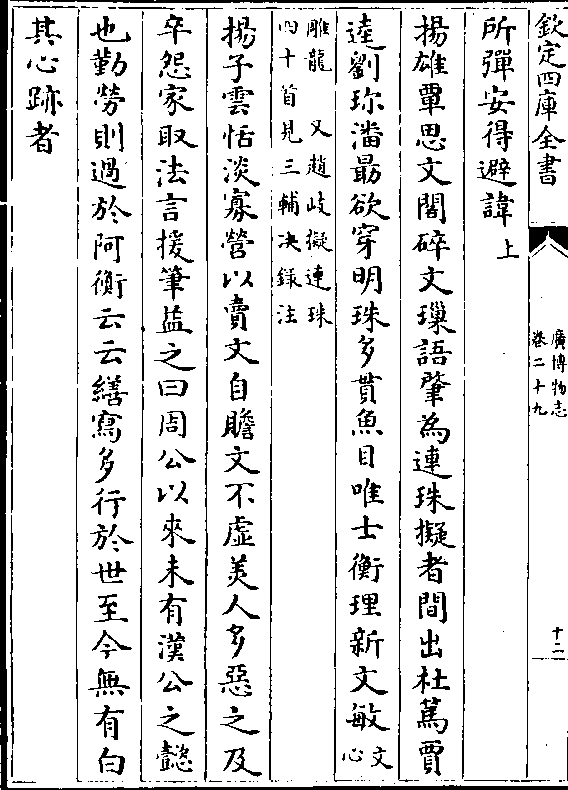 欽定四庫全書
廣博物志
卷二十九
十二
所彈安得避諱上
揚雄覃思文閣碎文璅語肇為連珠擬者間出杜篤賈
逵劉珎潘朂欲穿明珠多貫魚目唯士衡理新文敏文心
雕龍 又趙岐擬連珠
四十首見三輔决録注
揚子雲恬淡寡營以賣文自贍文不虛美人多惡之及
卒怨家取法言援筆益之曰周公以來未有漢公之懿
也勤勞則過於阿衡云云繕寫多行於世至今無有白
其心跡者